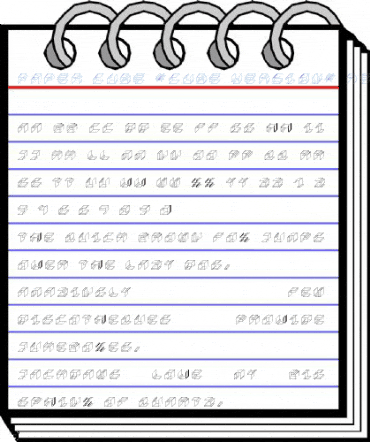 PAPER CUBE *CUBE VERSION*
AA BB CC DD EE FF GG HH II
JJ KK LL MM NN OO PP QQ RR
SS TT UU VV WW XX YY ZZ 1 2
3 4 5 6 7 8 9 0
THE QUICK BROWN FOX JUMPS
OVER THE LAZY DOG.
AMAZINGLY FEW
DISCOTHEQUES PROVIDE
JUKEBOXES.
JACKDAWS LOVE MY BIG
SPHINX OF QUARTZ.